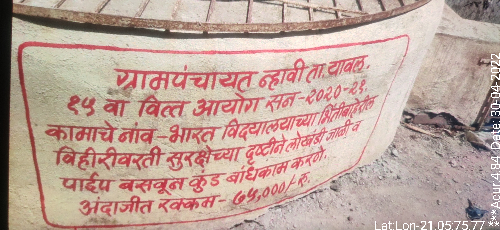 ग्रामपंचायत न्हावी ता.यावल.
१५ वा वित्त आयोग सन-२०२०-२१
कामाचे नांव-भारत विद्यालयाच्या भिंतीबाहेरील
विहीरीवरती सुरक्षेच्या दृष्टीने लोखंडी जाळी व
पाईप बसवून कुंड बांधकाम करणे.
अंदाजीत रक्कम- ७५,०००/-रु.
Lat:Lon-21.05:75.77
***Acur:4.84 Date: 30-04-2022